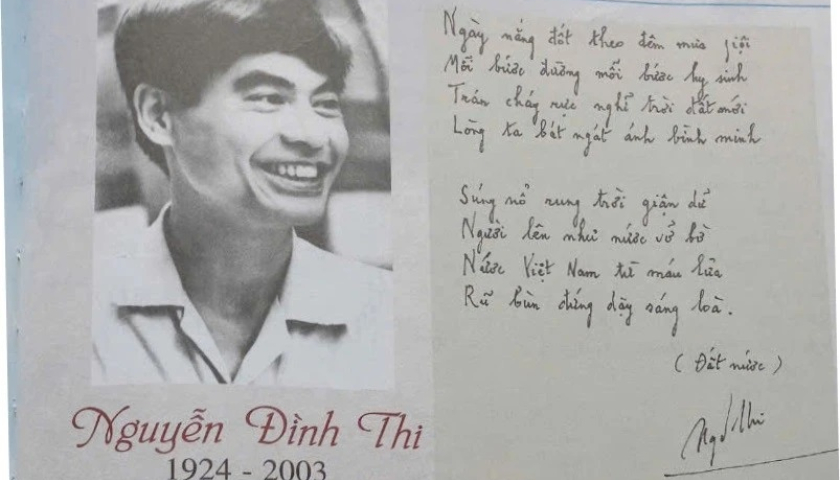 Nguyễn Đình Thi
1924 - 2003
Ngày nắng đốt theo đêm mưa giội
Mỗi bước đường mỗi bước hy sinh
Trán cháy rực nghĩ trời đất mới
Lòng ta bát ngát ánh bình minh
Súng nổ rung trời giận dữ
Người lên như nước vỡ bờ
Nước Việt Nam từ máu lửa
Rũ bùn đứng dậy sáng loà.
(Đất nước)